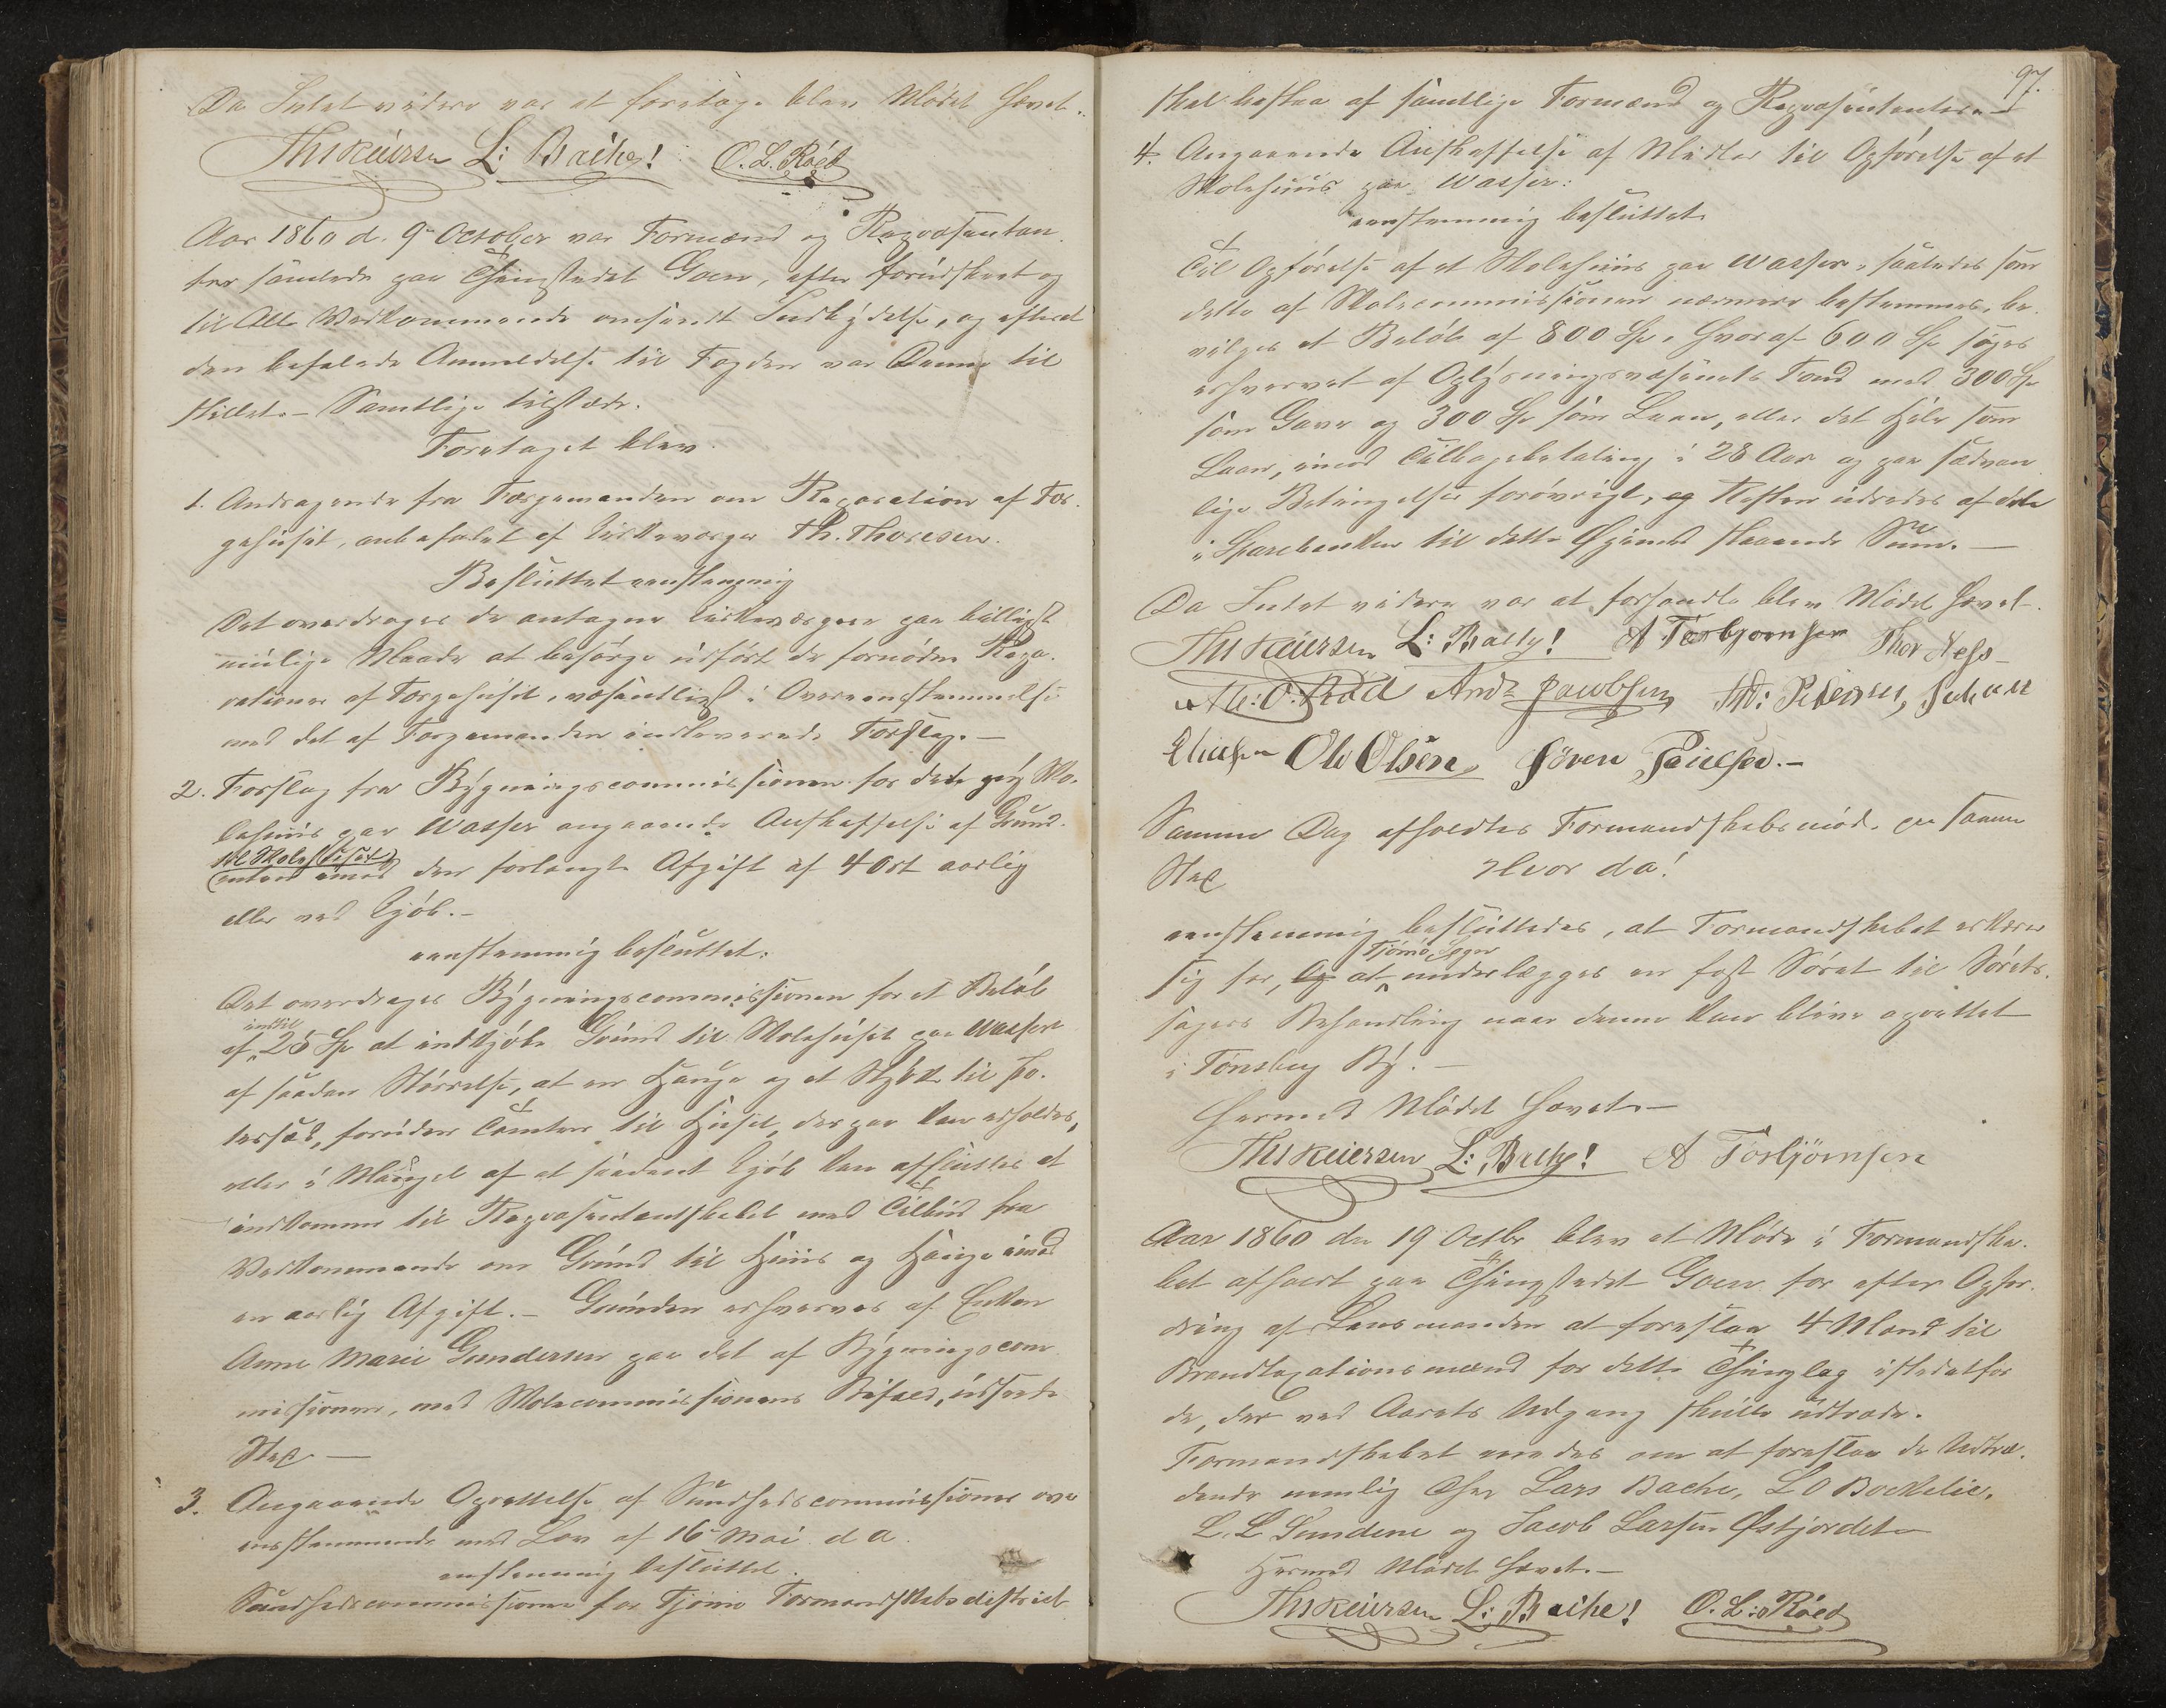 Da Intet videre var at foretage blev Mödet hævet.
Ths Reiersen L: Bache! O. L. Röed
Aar 1860 d. 9de October var Formænd og Repræsentan-
ter samlede paa Thingstedet Goen, efter forudskeet og
til Alle Vedkommende omsendt Indbydelse, og efterat
den befalede Anmeldelse til Fogden var Denne til
stillet. – Samtlige tilstede.
Foretaget blev.
1. Andragende fra Færgemanden om Reparation af Fær-
gehuset, anbefalet af Kirkeværge Th. Thoresen.
Besluttet eenstemmig
Det overdrages de antagne Kirkeværger paa billigst
mulige Maade at besörge udfört de fornödne Repa-
rationer af Færgehuset, væsentligst i Overeenstemmelse
med det af Færgemanden indleverede Forslag. –
2. Forslag fra Bygningscommissionen for det nye Sko-
lehuus paa Vasser angaaende Anskaffelse af Grund
til Skolehuset
enten imod den forlangte Afgift af 4 Ort aarlig
eller ved Kjöb. –
eenstemmig besluttet:
Det overdrages Bygningscommissionen for et Belöb
indtil
af 25 Sp at indkjöbe Grund til Skolehuset paa Vasser
af saadan Störrelse, at en Hauge og et Stykke til Po-
tetsæd, foruden Tomten til Huset, derpaa kan erholdes,
eller i Mangel af at saadant Kjöb kan afsluttes at
indkomme til Repræsentantskabet med Tilbud fra
Vedkommende om Grund til Huus og Hauge imod
en aarlig Afgift. – Grunden erhverves af Enken
Anne Marie Gundersen paa det af Bygningscom-
missionen, med Skolecommissionens Bifald, udseete
Sted. –
3. Angaaende Oprettelse af Sundhedscommissioner over-
ensstemmende med Lov af 16de Mai d. A.
eenstemmig besluttet.
Sundhedscommissionen for Tjömö Formandskabsdistrict
97.
skal bestaa af samtlige Formænd og Repræsentanter. –
4. Angaaende Anskaffelse af Midler til Opförelse af et
Skolehuus paa Vasser:
eenstemmig besluttet
Til Opförelse af et Skolehuus paa Vasser, saaledes som
dette af Skolecommissionen nærmere bestemmes, be-
vilges et Belöb af 800 Sp, hvoraf 600 Sp söges
erhvervet af Oplysningsvæsenets Fond med 300 Sp
som Gave og 300 Sp som Laan, eller det Hele som
Laan, imod Tilbagebetaling i 28 Aar og paa sædvan-
lige Betingelser forövrigt, og Resten udredes af den
i Sparebanken til dette Øiemed staaende Sum. –
Da Intet videre var at forhandle blev Mödet hævet.
Ths Reiersen L: Bache! A Torbjörnsen Thor Næss
O. Röed Andr Jacobsen Ad: Petersen, Johan
Eliassen Ole Olsen Sören Poulsen. –
Samme Dag afholdtes Formandskabsmöde paa samme
Sted Hvor da!
eenstemmig besluttedes, at Formandskabet erklærer
Tjömö Sogn
sig for, og at underlægges en fast Söret til Sörets-
sagers Behandling naar denne kan blive oprettet
i Tönsberg By. –
Hermed Mödet hævet. –
Ths Reiersen L: Bache! A Torbjörnsen
Aar 1860 den 19 Octbr blev et Möde i Formandska-
bet afholdt paa Thingstedet Goen for efter Opfor-
dring af Lensmanden at foreslaa 4 Mænd til
Brandtaxationsmænd for dette Thinglag istedetfor
de, der ved Aarets Udgang skulle udtræde.
Formandskabet enedes om at foreslaa de Udtræ-
dende nemlig Lars Bache, L O Bockelie,
L. L Sundene og Jacob Larsen Østjordet
Hermed Mödet hævet. –
Ths Reiersen L: Bache! O. L: Röed